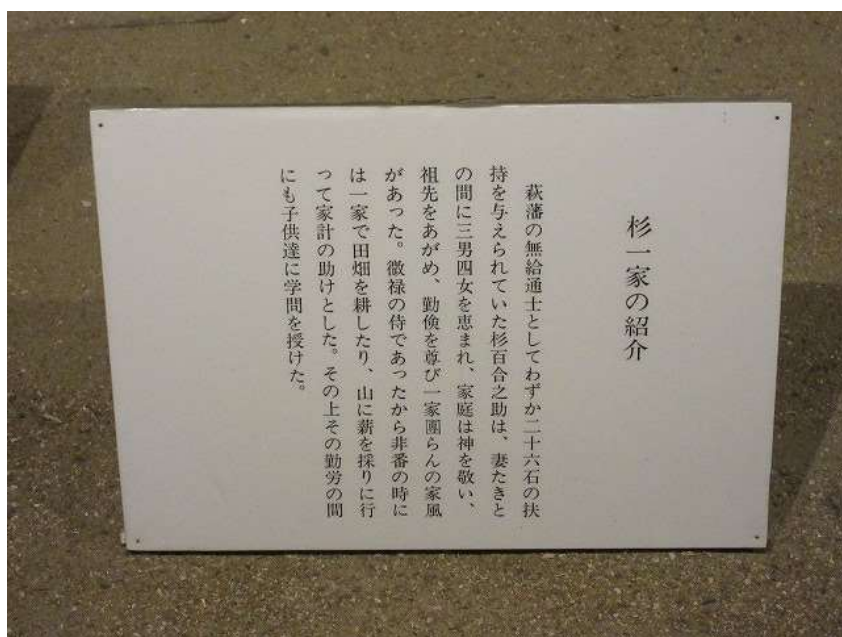 杉一家の紹介
萩藩の無給通士としてわずか二十六石の扶
持を与えられていた杉百合之助は、妻たきと
の間に三男四女を恵まれ、家庭は神を敬い、
祖先をあがめ、勤倹を尊び一家團らんの家風
があった。微禄の侍であったから非番の時に
は一家で田畑を耕したり、山に薪を採りに行
って家計の助けとした。その上その勤労の間
にも子供達に学問を授けた。